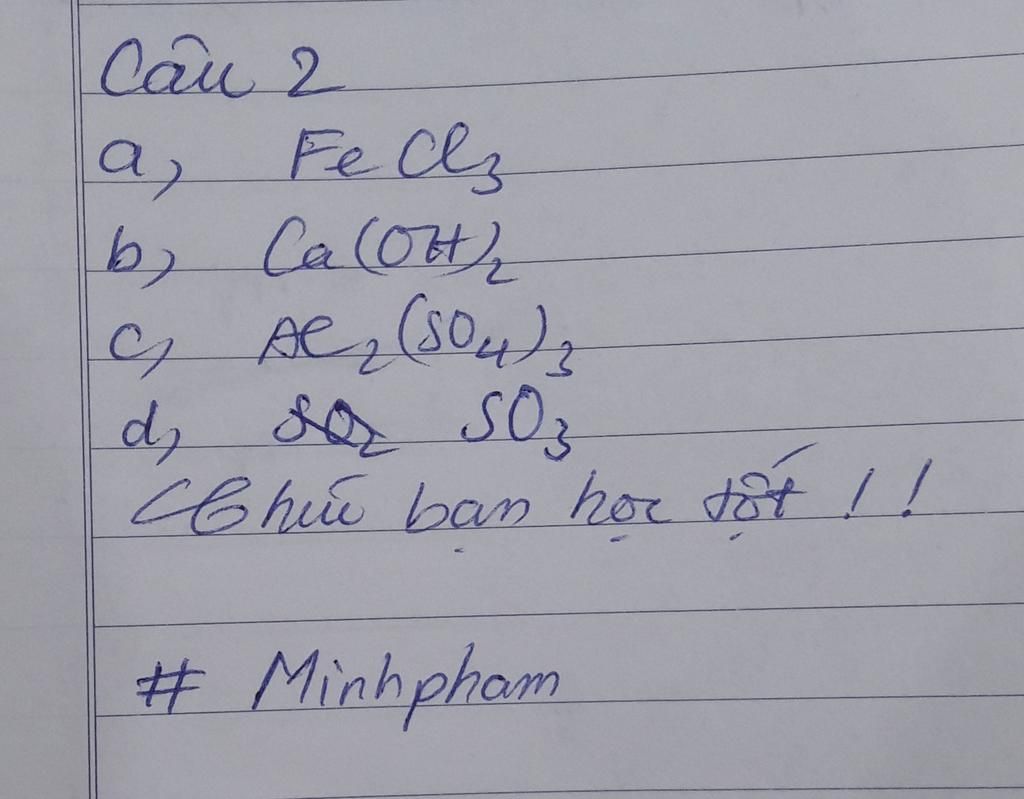 Câu 2
a, FeCl₃
b, Ca(OH)₂
c, Al₂(SO₄)₃
d, SO₂ SO₃
Chúc bạn học tốt !!
# Minhpham